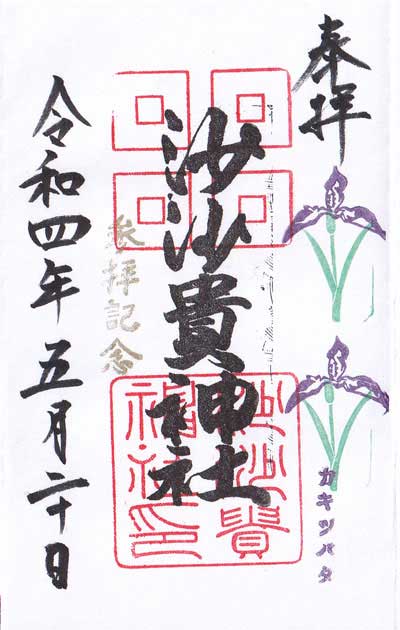 奉拝
カキツバタ
沙沙貴神社
沙沙貴神社印
参拝記念
令和四年五月二十日